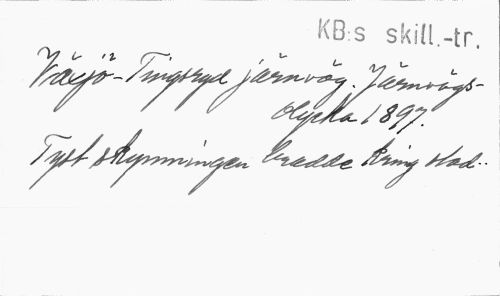 KB:s skill.-tr.
Växjö-Tingsryd järnväg. Järnvägs-
olycka 1897.
Tyst skymningen bredde kring stad..